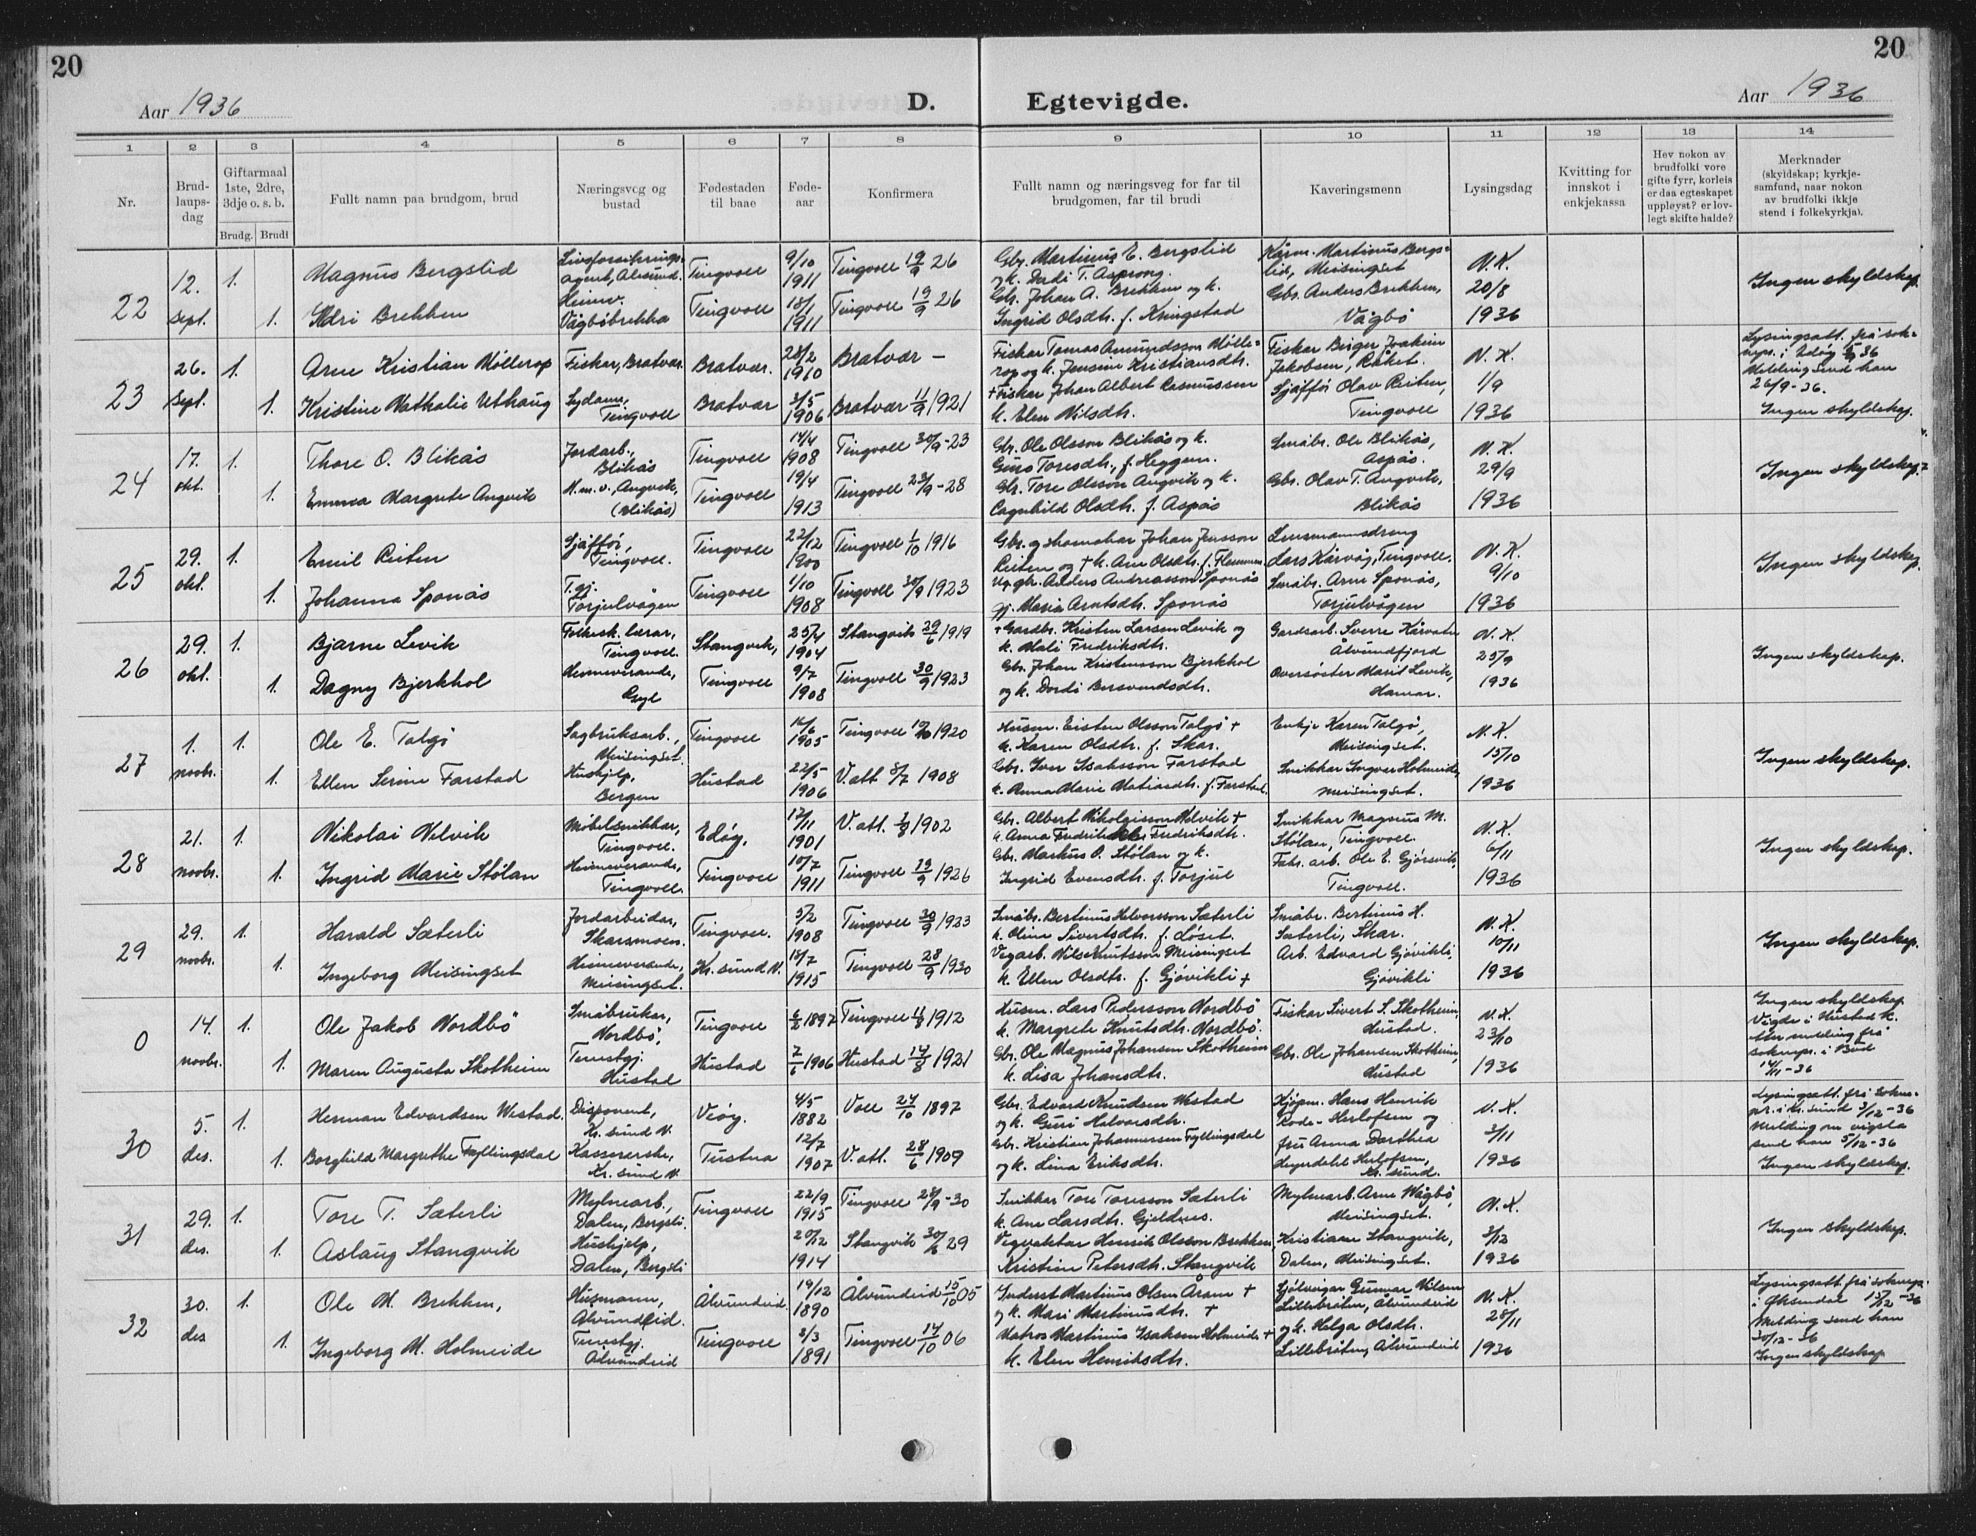 20
20
Aar 1936
D.
Egtevigde.
Aar 1936
1 2 3 4 5 6 7 8 9 10 11 12 13 14
Nr.
Brud-
laups-
dag
Giftarmaal
1ste, 2dre,
3dje o. s. b.
Brudg. Brudi
Fullt namn paa brudgom, brud
Næringsveg og
bustad
Fødestaden
til baae
Føde-
aar
Konfirmera
Fullt namn og næringsveg for far til
brudgomen, far til brudi
Kaveringsmenn
Lysingsdag
Kvitting for
innskot i
enkjekassa
Hev nokon av
brudfolki vore
gifte fyrr, korleis
er daa egteskapet
uppløyst? er lov-
legt skifte halde?
Merknader
(skyldskap; kyrkje-
samfund, naar nokon
av brudfolki ikkje
stend i folkekyrkja).
22
12.
Sept.
1. Magnus Bergslid
agent, Ålesund. Tingvoll 9/10 1911 Tingvoll 19/9 26
1. Brekken
Vågbøbrekka Tingvoll 18/1 1911 Tingvoll 19/9 26
Gbr. Martinus E. Bergslid
og k. Dordi T. Asprong.
Gbr. Johan A. Brekken og k.
Ingrid Olsdh. f. Kringstad
Kårm. Martinus Bergs-
lid, Meisingset
Gbr. Anders Brekken,
Vågbø
N. K.
20/8
1936
Ingen skyldskap.
23
26.
Sept.
1. Arne Kristian Møllerop
Fiskar, Bratvær. Bratvær. 28/2 1910 Bratvær –
1. Kristine Nathalie Uthaug
Sydame,
Tingvoll Bratvær 3/5 1906 Bratvær 11/9 1921
Fiskar Tomas Amundsson Mølle-
rop og k. Jensine Kristiansdh.
+ Fiskar Johan Albert Rasmussen
k. Elen Nilsdh.
Fiskar Birger Joakim
Jakobsen, Råket.
Sjåffør Olav Reiten,
Tingvoll
N. K.
1/9
1936
Lysingsatt. frå sok-
nepr. i Edøy 36
Melding send han
26/9 - 36.
Ingen skyldskap.
24
17.
okt.
1. Thore O. Blikås
Jordarb.,
Blikås Tingvoll 14/4 1908 Tingvoll 30/9 - 23
1. Emma Margrete Angvik
H. m. v., Angvik,
(Blikås) Tingvoll 19/4 1913 Tingvoll 23/9 - 28
Gbr. Ole Olsson Blikås og k.
Guro Toresdh., f. Heggem.
Gbr. Tore Olsson Angvik og k.
Ragnhild Olsdh. f. Aspås
Småbr. Ole Blikås,
Aspås.
Gbr. Olav T. Angvik,
Blikås
N. K.
29/9
1936
Ingen skyldskap.
25
29.
okt.
1. Emil Reiten
Sjåffør,
Tingvoll. Tingvoll 22/12 1900 Tingvoll 1/10 1916
1. Johanna Sponås
T. gj.
Torjulvågen Tingvoll 1/10 1908 Tingvoll 30/9 1923
Gbr. og skomakar Johan Jensson
Reiten og + k. Ane Olsdh. f. Flemmen
Ug. gk. Anders Andreasson Sponås
gj. Maria Arntsdh. Sponås
Lensmannsdreng
Lars Kårvåg, Tingvoll.
Småbr. Arne Sponås,
Torjulvågen
N. K.
9/10
1936
Ingen skyldskap.
26
29.
okt.
1. Bjarne Levik
Folkesk. lærar,
Tingvoll. Stangvik, 25/4 1904 Stangvik 29/6 1919
1. Dagny Bjerkhol
Heimeverande,
Gyl Tingvoll 9/7 1908 Tingvoll 30/9 1923
+ Gardbr. Kristen Larsen Levik og
k. Mali Fredriksdh.
Gbr. Johan Kristensson Bjerkhol
og k. Dordi Bersvendsdh.
Gardsarb. Sverre Kårvatn
Ålvundfjord
Oversøster Marit Levik,
Hamar.
N. K.
25/9
1936
Ingen skyldskap.
27
1.
novbr.
1. Ole E. Talgø
Sagbruksarb.,
Meisingset. Tingvoll 14/6 1905 Tingvoll 10/10 1920
1. Ellen Serine Farstad
Hushjelp,
Bergen Hustad 22/5 1906 V. att. 8/7 1908
Husm. Eisten Olsson Talgø +
k. Karen Olsdh. f. Skar.
Gbr. Iver Isaksson Farstad
k. Anna Marie Matiasdh. f. Farstad.
Enkje Karen Talgø,
Meisingset.
Snikkar Ingvar Holmeide,
Meisingset.
N. K.
15/10
1936
Ingen skyldskap.
28
21.
novbr.
1. Nikolai Nelvik
Møbelsnikkar,
Tingvoll. Edøy, 12/11 1901 V. att. 1902
1. Ingrid Marie Stølan
Heimeverande,
Tingvoll. Tingvoll 10/7 1911 Tingvoll 19/9 1926
Gbr. Albert Nikolaisson Nelvik +
k. Anna Fredrikke Fredriksdh.
Gbr. Markus O. Stølan og k.
Ingrid Evensdh. f. Torjul
Snikkar Magnus M.
Stølan, Tingvoll.
Fabr. arb. Ole E. Gjørsvik,
Tingvoll.
N. K.
6/11
1936
Ingen skyldskap.
29
29.
novbr.
1. Harald Sæterli
Jordarbeidar,
Skarsmoen. Tingvoll. 5/2 1908 Tingvoll 30/9 1923
1. Ingeborg Meisingset
Heimeverande,
Meisingset. Kr. sund N. 13/7 1915 Tingvoll 28/9 1930
Småbr. Bertinus Halvorsson Sæterli
k. Oline Sivertsdh. f. Løset.
Vegarb. Nils Knutsson Meisingset
k. Ellen Olsdh. f. Gjøvikli +
Småbr. Bertinus H.
Sæterli, Skar.
Arb. Edvard Gjøvikli,
Gjøvikli
N. K.
10/11
1936
Ingen skyldskap.
0
14.
novbr.
1. Ole Jakob Nordbø
Småbrukar,
Nordbø, Tingvoll 6/2 1897 Tingvoll 11/8 1912
1. Maren Augusta Skotheim
Tenestgj.
Hustad Hustad 7/6 1906 Hustad 14/8 1921
Husm. Lars Pedersson Nordbø
k. Margrete Knutsdh. Nordbø.
Gbr. Ole Magnus Johansen Skotheim
k. Lisa Johansdh.
Fiskar Sivert S. Skotheim,
Hustad.
Gbr. Ole Johansen Skotheim,
Hustad
N. K.
23/10
1936
Ingen skyldskap
Vigde i Hustad k.
etter melding frå
soknepr. i Bud
14/11 - 36
30
5.
des.
1. Herman Edvardsen Westad.
Disponent,
Kr. sund N. Veøy. 4/5 1882 Voll 24/10 1897
1. Borghild Margrethe Fyllingsdal
Kasserarske,
Kr. sund N. Tustna 12/7 1907 V. att. 28/6 1909
Gbr. Edvard Knudsen Wstad
og k. Guri Halvorsdh.
Gbr. Kristian Johannessen Fyllingsdal
og k. Lina Eriksdh.
Kjøpm. Hans Henrik
Rode - Herlofsen og
fru Anna Dorthea
Herlofsen,
Kr. sund.
N. K.
3/11
1936
Lysingsatt. frå sokne-
pr. i Kr. sund 3/12 - 36
Melding om vigsla
send han 5/12 - 36
Ingen skyldskap.
31
29.
des.
1. Tore T. Sæterli
Mylnearb.,
Dalen, Bergsli. Tingvoll 22/9 1915 Tingvoll 28/9 - 30
1. Aslaug Stangvik
Hushjelp,
Dalen, Bergsli 20/12 1914 Stangvik 30/6 29
Snikkar Tore Toresson Sæterli
k. Ane Larsdh. Gjeldnes.
Vegvaktar Henrik Olsson Brekken
Kristine Petersdh. Stangvik
Mylnearb. Arne Vågbø,
Meisingset.
Kristiane Stangvik,
Dalen, Meisingset.
N. K.
3/12
1936
Ingen skyldskap.
32
30.
des
1. Ole M. Brekken,
Husmann,
Ålvundeid. Ålvundeid 19/12 1890 Ålvundeid 15/10 05
1. Ingeborg M. Holmeide
Tenestgj.
Ålvundeid Tingvoll 2/3 1891 Tingvoll 14/10 06
Inderst Martinus Olsen Åram +
og k. Mari Martinusdh. +
Matros Martinus Isaksen Holmeide +
k. Elen Henriksdh.
Sjølveigar Gunnar Nilsen
Lillebrøten, Ålvundeid
og k. Helga Olsdh.
Lillebrøten, Ålvundeid
N. K.
28/11
1936
Lysingsatt. frå soknepr.
i Øksendal 15/12 - 36
Melding send han
30/12 - 36
Ingen skyldskap